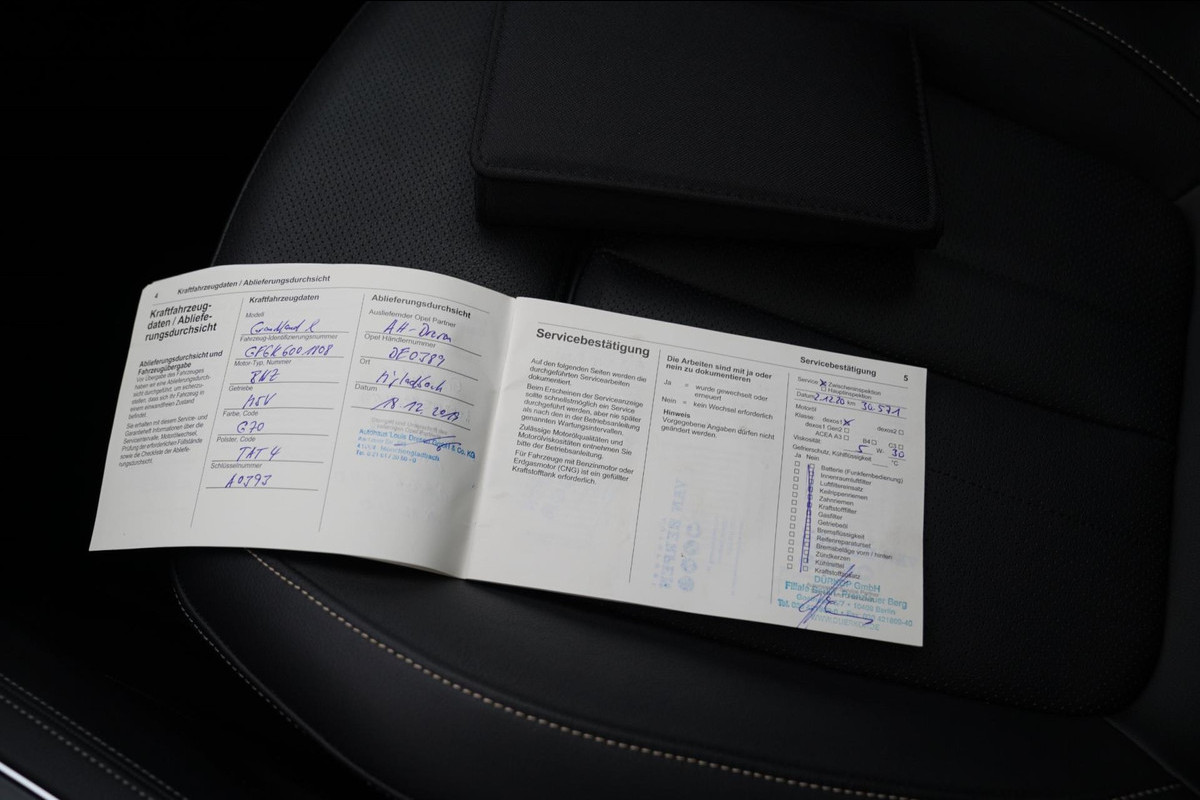 4 Kraftfahrzeugdaten / Ablieferungsdurchsicht
Kraftfahrzeug-
daten / Abliefe-
rungsdurchsicht
Ablieferungsdurchsicht und
Fahrzeugübergabe
Vor Übergabe des Fahrzeuges
haben wir eine Ablieferungsdurch-
sicht durchgeführt, um sicherzu-
stellen, dass sich Ihr Fahrzeug in
einem einwandfreien Zustand
befindet.
Sie erhalten mit diesem Service- und
Garantieheft Informationen über die
Serviceintervalle, Motorölwechsel,
Prüfung der erforderlichen Füllstände
sowie die Checkliste der Abliefe-
rungsdurchsicht.
Kraftfahrzeugdaten
Modell
Grandland X
Fahrzeug-Identifizierungsnummer
Motor-Typ, Nummer
Getriebe
Farbe, Code
G70
Polster, Code
TAT 4
Schlüsselnummer
A0393
Ablieferungsdurchsicht
Ausliefernder Opel Partner
Opel Händlernummer
DE0389
Ort
M'gladbach
Datum
18.12.
Autohaus Louis
Mönchengladbach
Servicebestätigung
Auf den folgenden Seiten werden die
durchgeführten Servicearbeiten
dokumentiert.
Beim Erscheinen der Serviceanzeige
sollte schnellstmöglich ein Service
durchgeführt werden, aber nie später
als nach den in der Betriebsanleitung
genannten Wartungsintervallen.
Zulässige Motorölqualitäten und
Motorölviskositäten entnehmen Sie
bitte der Betriebsanleitung.
Für Fahrzeuge mit Benzinmotor oder
Erdgasmotor (CNG) ist ein gefüllter
Kraftstofftank erforderlich.
Die Arbeiten sind mit ja oder
nein zu dokumentieren
Ja = wurde gewechselt oder
erneuert
Nein = kein Wechsel erforderlich
Hinweis
Vorgegebene Angaben dürfen nicht
geändert werden.
Servicebestätigung 5
Service: Zwischeninspektion
Hauptinspektion
Datum 2.12.20 km 30.571
Motoröl
Klasse: dexos1 dexos2
dexos1 Gen2
ACEA A3 B4 C3
Viskosität: 5 W- 30
Gefrierschutz, Kühlflüssigkeit °C
Ja Nein
Batterie (Funkfernbedienung)
Innenraumluftfilter
Luftfiltereinsatz
Keilrippenriemen
Zahnriemen
Kraftstofffilter
Gasfilter
Getriebeöl
Bremsflüssigkeit
Reifenreparaturset
Bremsbeläge vorn / hinten
Zündkerzen
Kühlmittel
DÜRKOP GmbH
Filiale Berlin Prenzlauer Berg